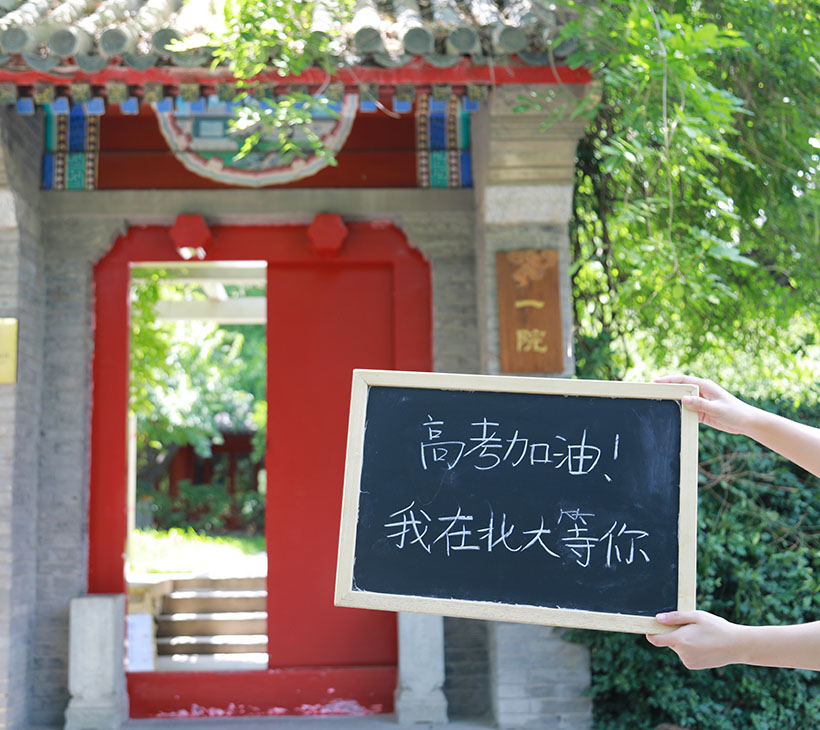 一院
高考加油！
我在北大等你